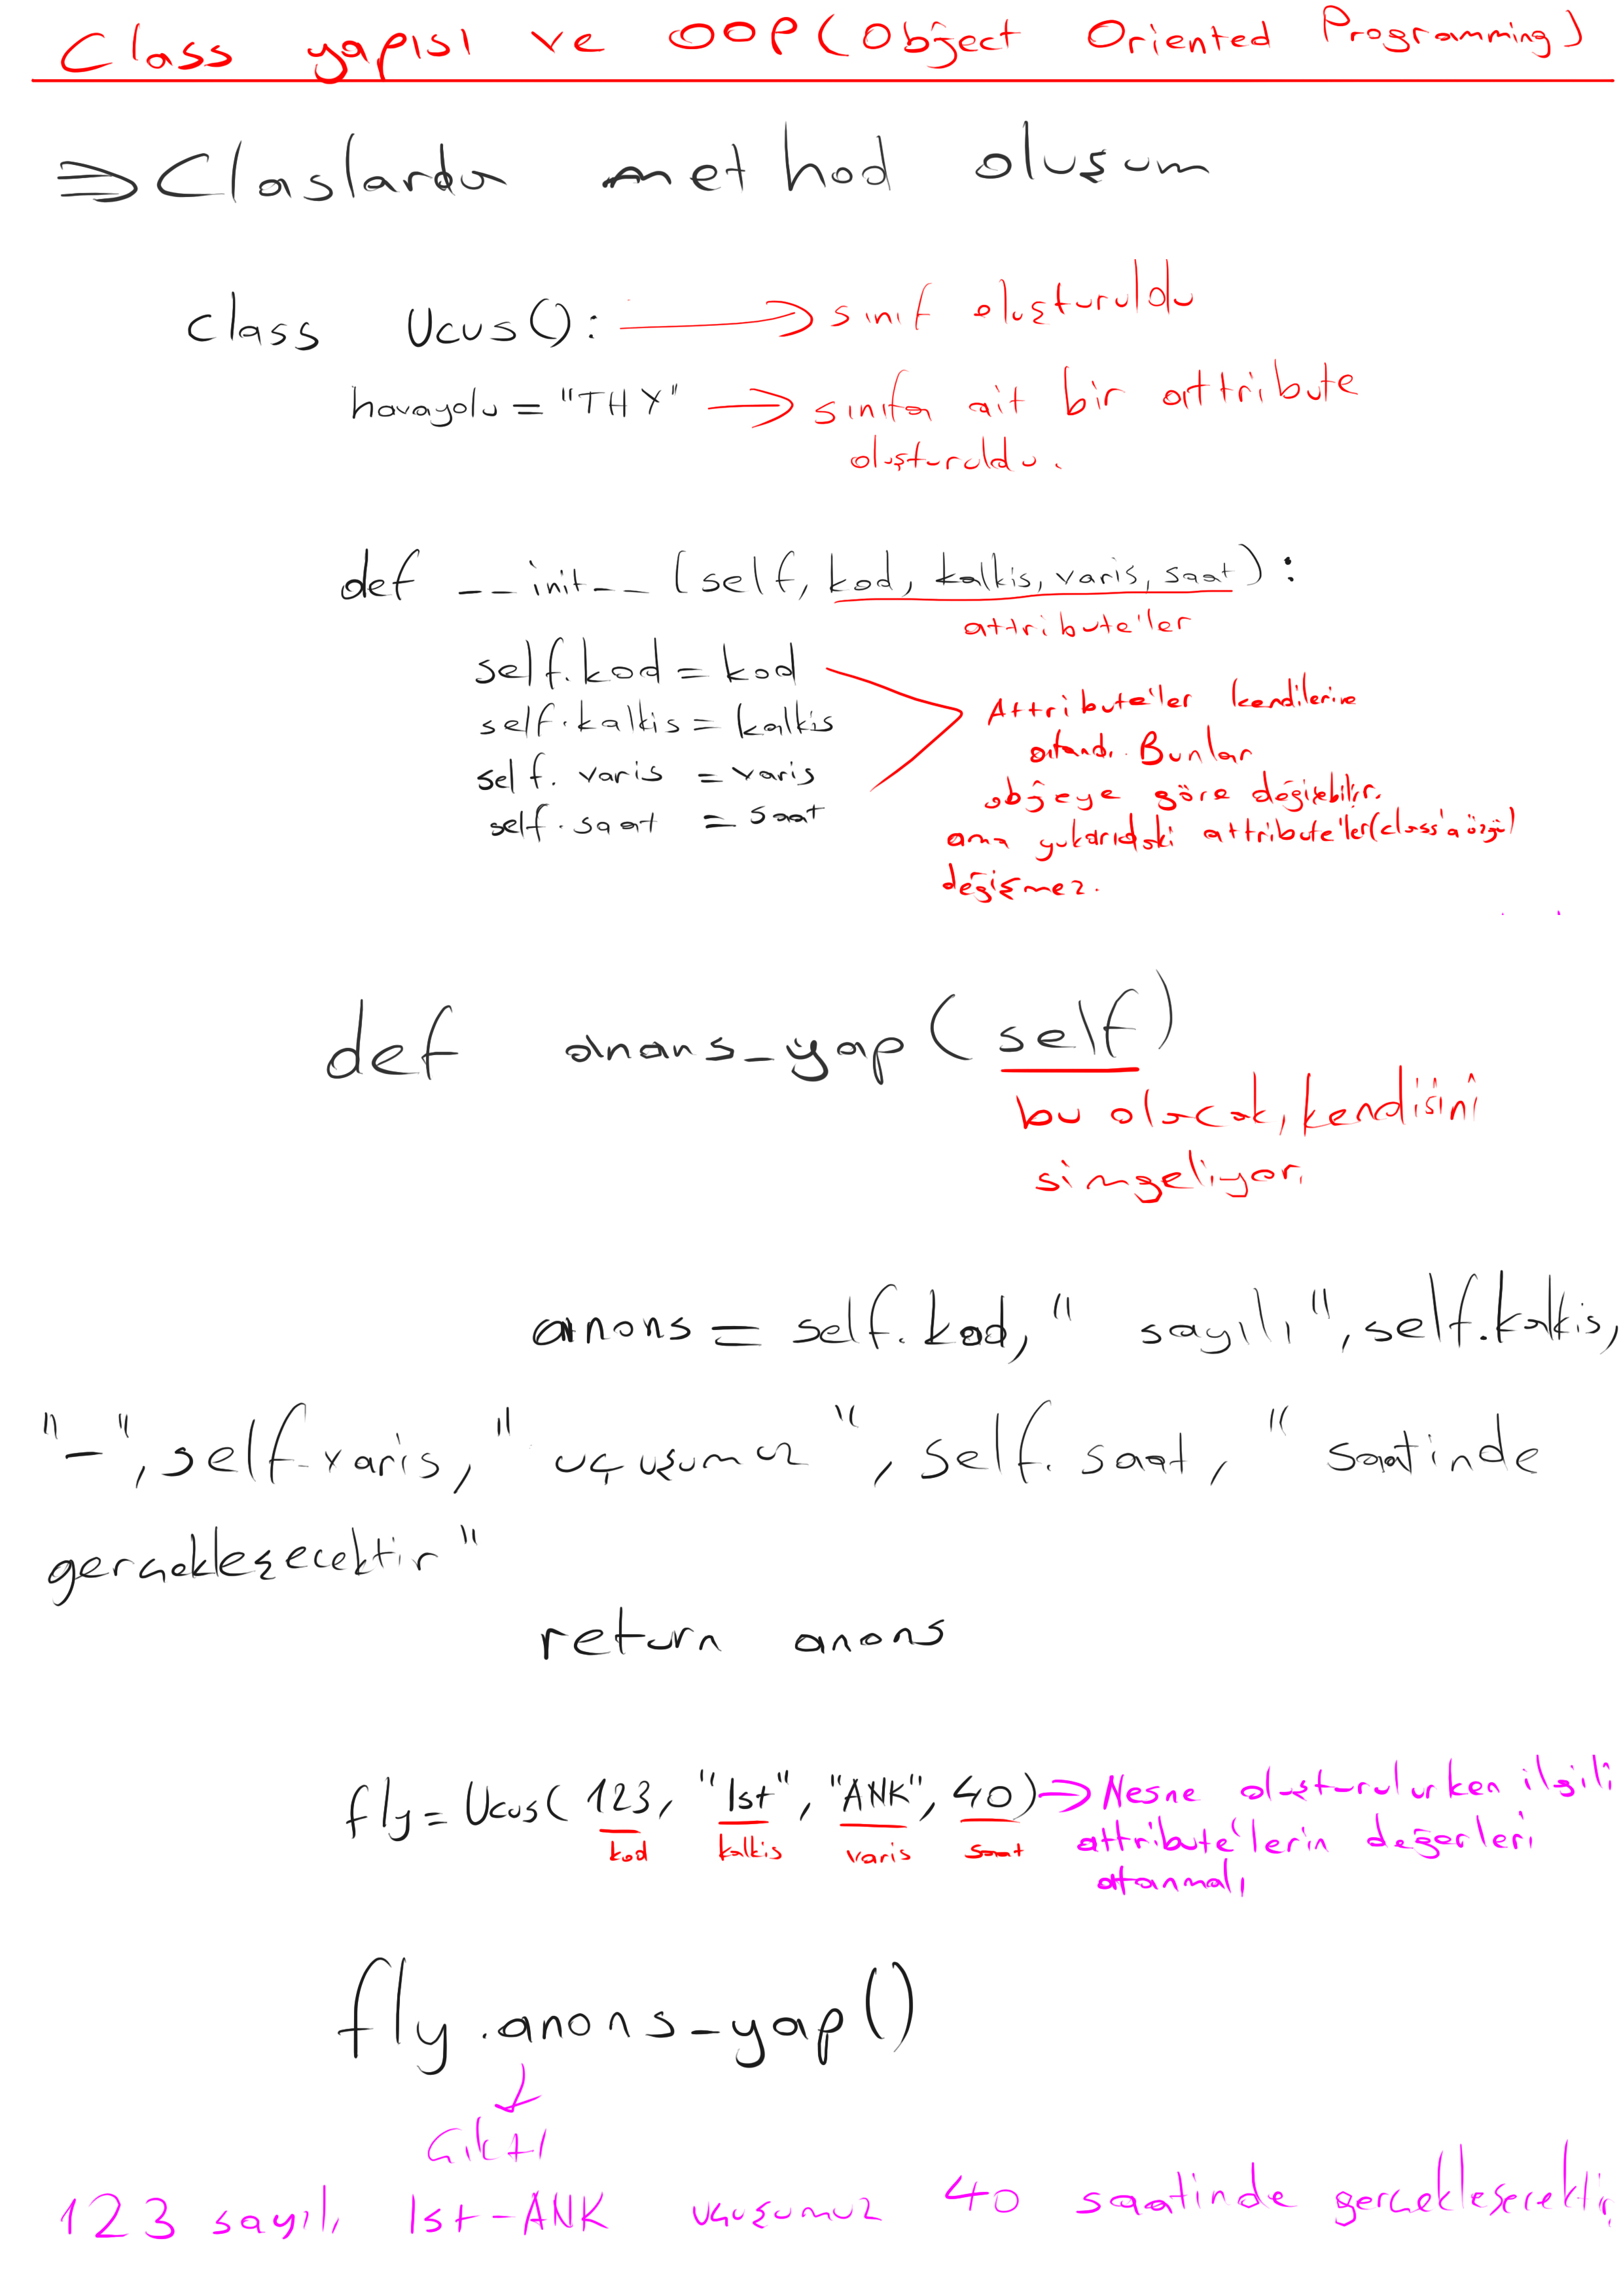 Class yapısı ve OOP(Object Oriented Programming)
⇒Claslarda method oluşum
class Ucus(): → sınıf oluşturuldu
havayolu = "THY" → sınıfa ait bir attribute
oluşturuldu.
def __init__ (self, kod, kalkis, varis, saat):
attribute'ler
self.kod = kod
self.kalkis = kalkis
self.varis = varis
self.saat = saat
Attribute'ler kendilerine
atandı. Bunlar
objeye göre değişebilir.
ama yukarıdaki attribute'ler(class'a özgü)
değişmez.
def anons_yap(self)
bu olacak, kendisini
simgeliyor.
anons = self.kod, " sayılı ", self.kalkis,
"-", self.varis, " uçuşumuz ", self.saat, " saatinde
gerçekleşecektir"
return anons
fly = Ucus( 123, "Ist", "ANK", 40) → Nesne oluşturulurken ilgili
kod kalkis varis saat attribute'lerin değerleri
atanmalı
fly.anons_yap()
Çıktı
123 sayılı Ist-ANK uçuşumuz 40 saatinde gerçekleşecektir